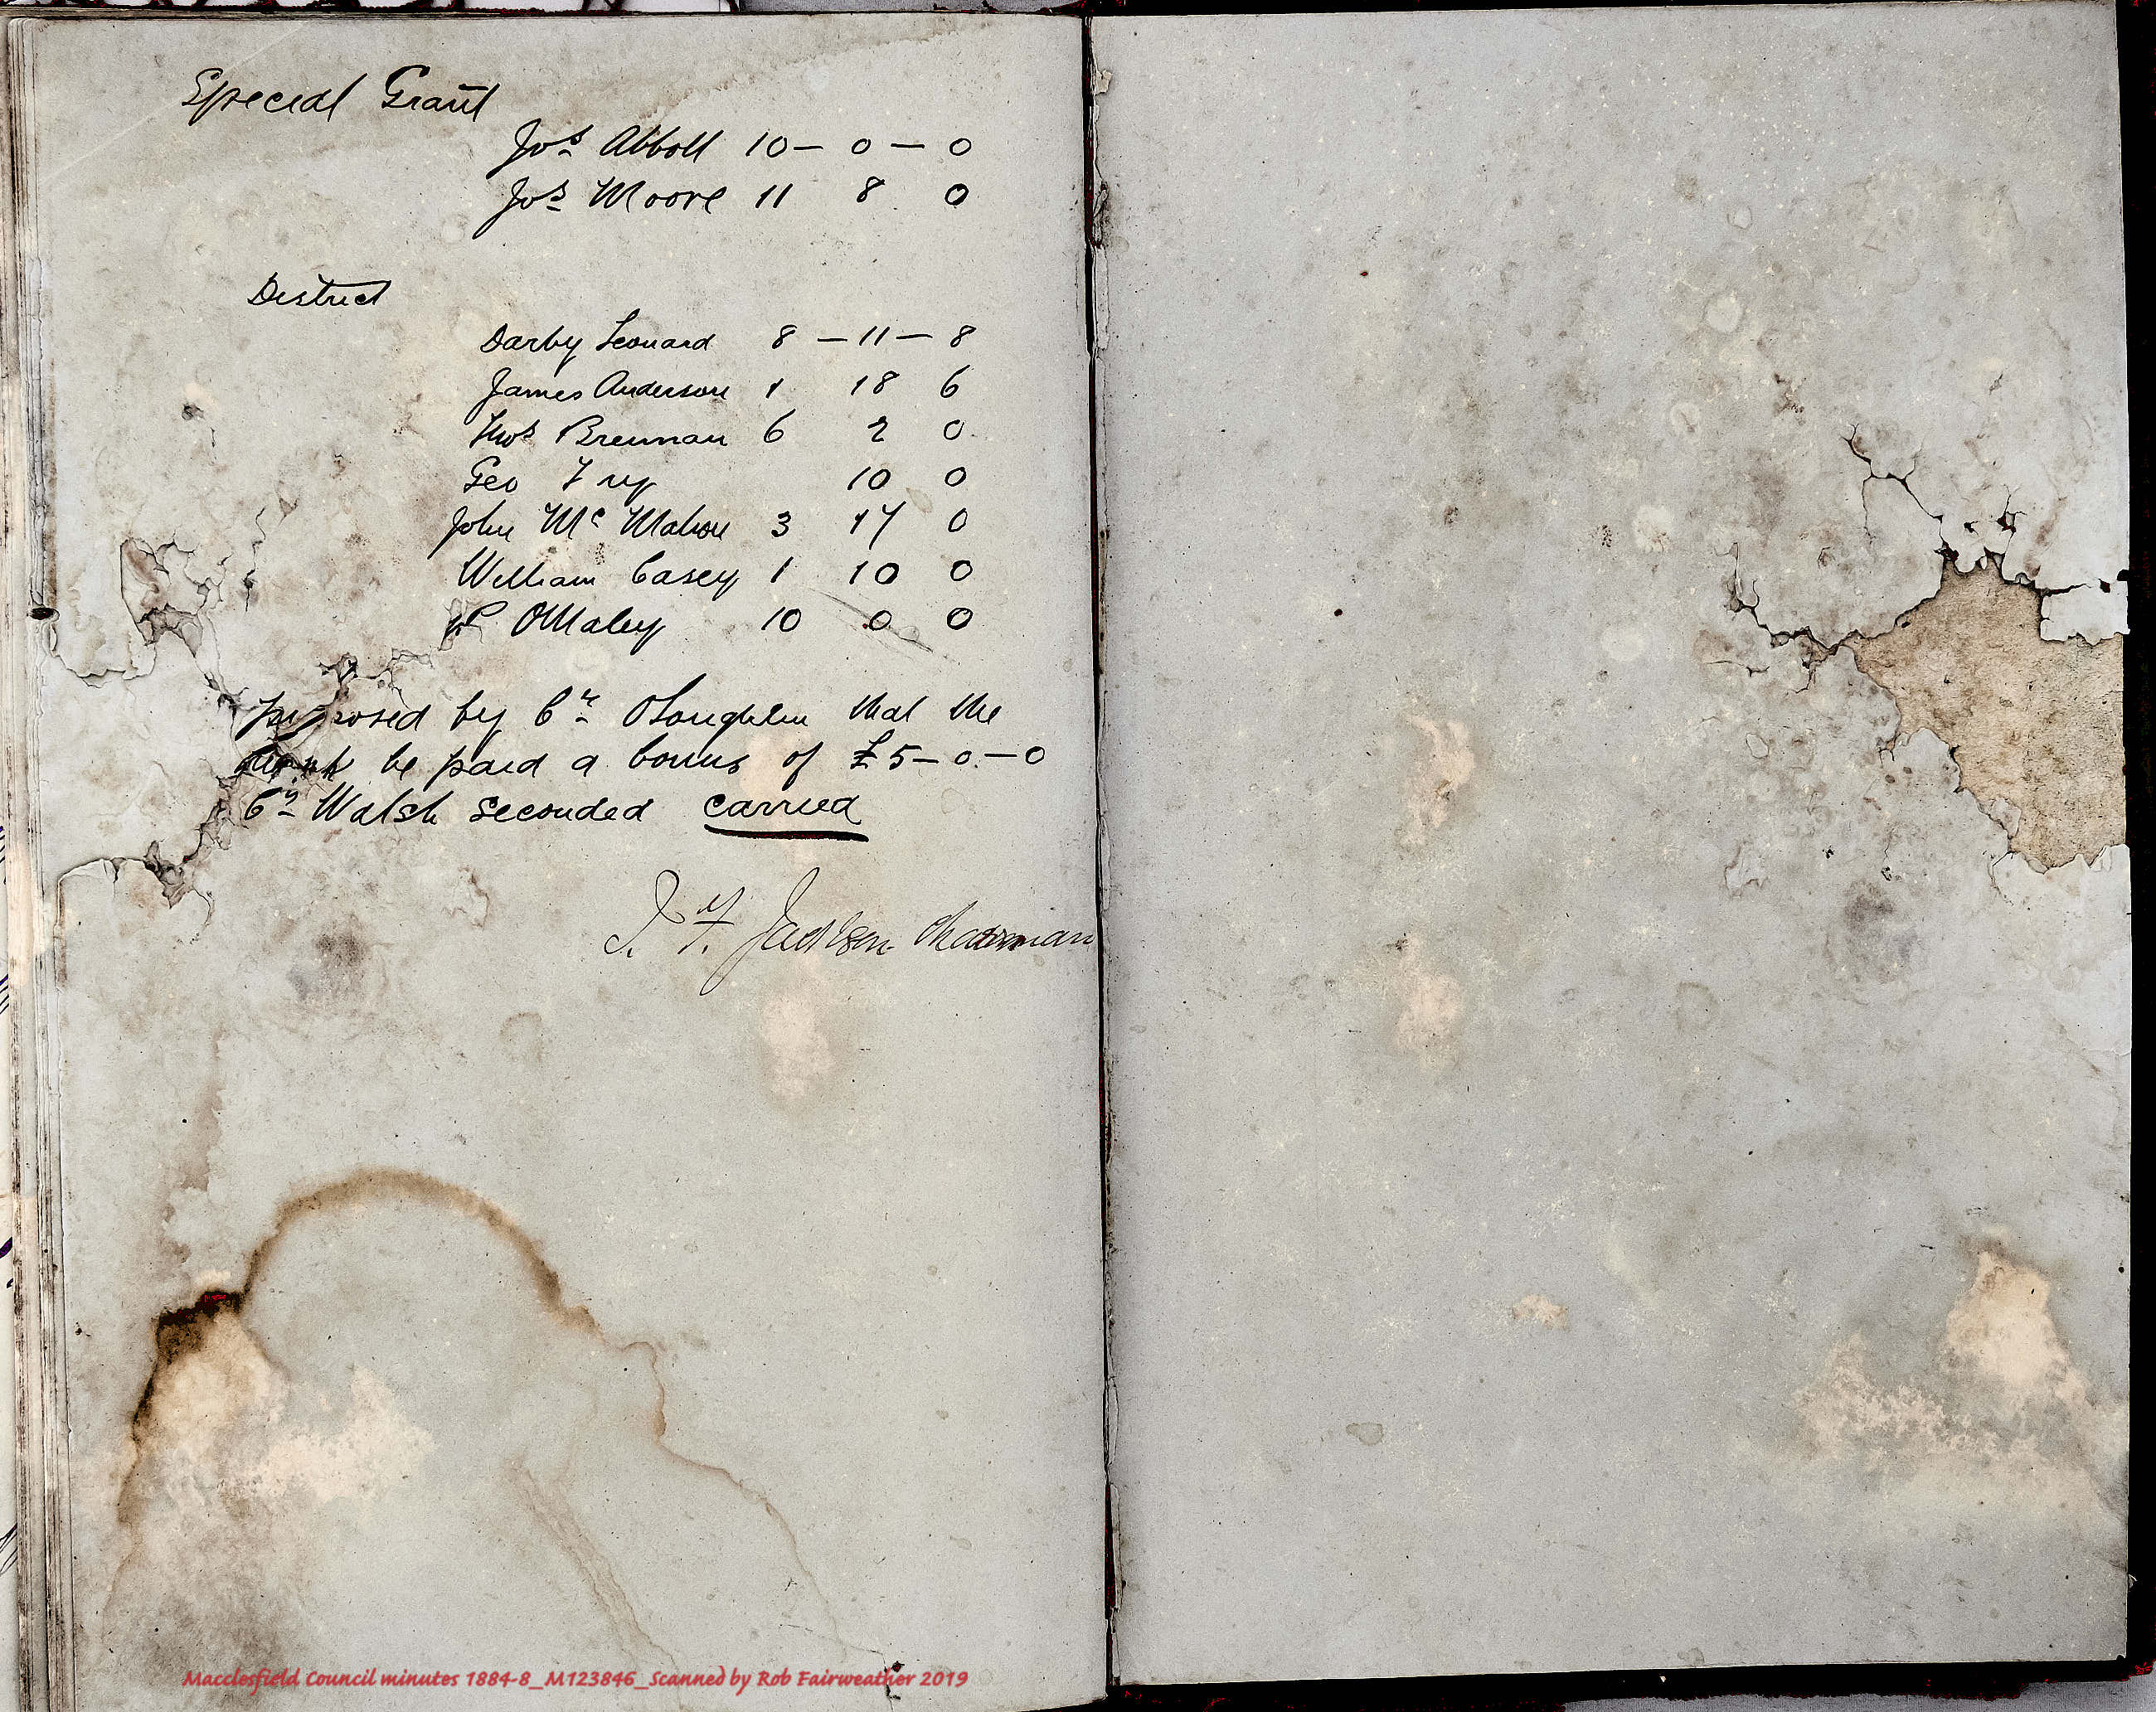 Special Grant
Jos Abbott 10 — 0 — 0
Jos Moore 11 8 0
District
Darby Leonard 8 — 11 — 8
James Anderson 1 18 6
Thos Brennan 6 2 0
Geo Fry 10 0
John Mc Mahon 3 17 0
William Casey 1 10 0
P OMaley 10 0 0
proposed by Cr OLoughlin that the
be paid a bonus of £5 — 0 — 0
Cr Walsh seconded carried
Jackson Chairman
Macclesfield Council minutes 1884-8_M123846_Scanned by Rob Fairweather 2019